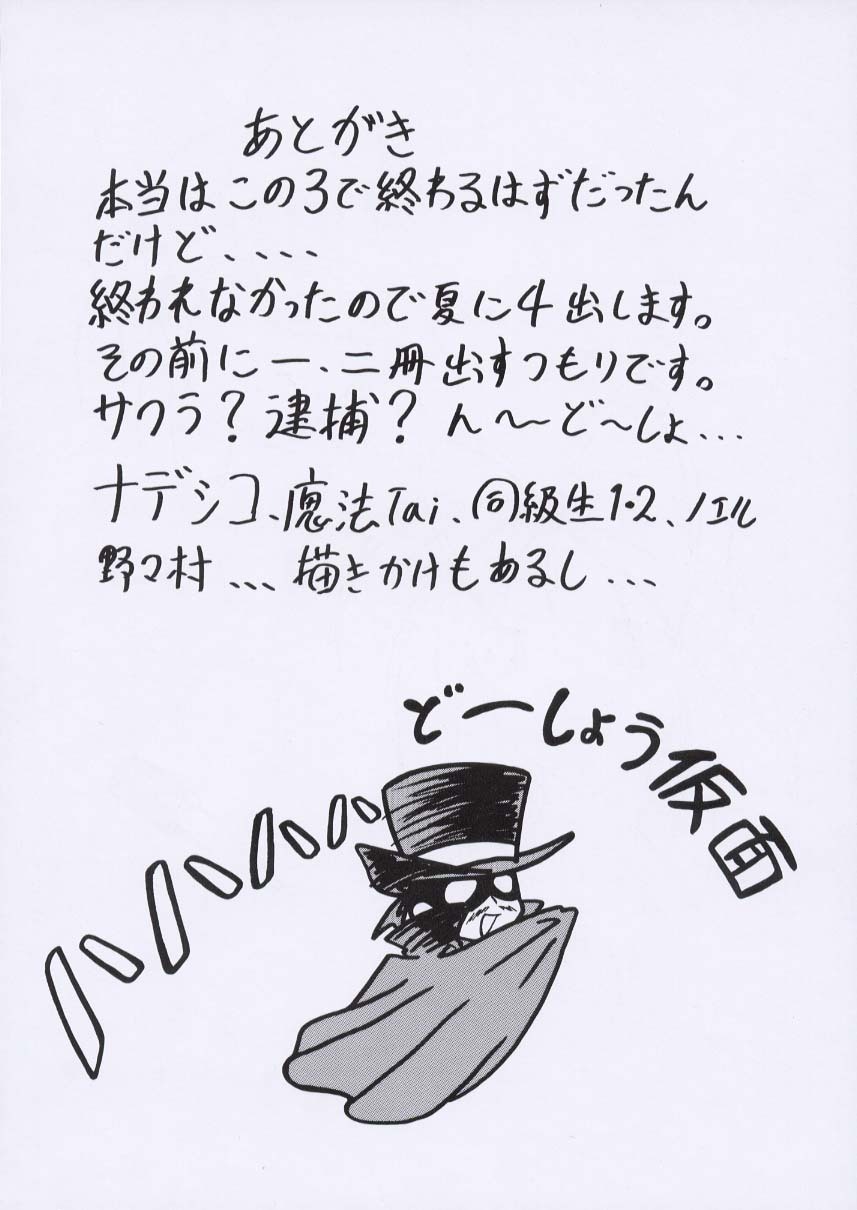 あとがき
本当はこの3で終わるはずだったん
だけど、、、、
終われなかったので夏に4出します。
その前に一、二冊出すつもりです。
サクラ?逮捕?ん〜ど〜しょ...
ナデシコ、魔法Tai、同級生1・2、ノエル
野々村、、、描きかけもあるし...
どーしょう仮面
ハハハハ